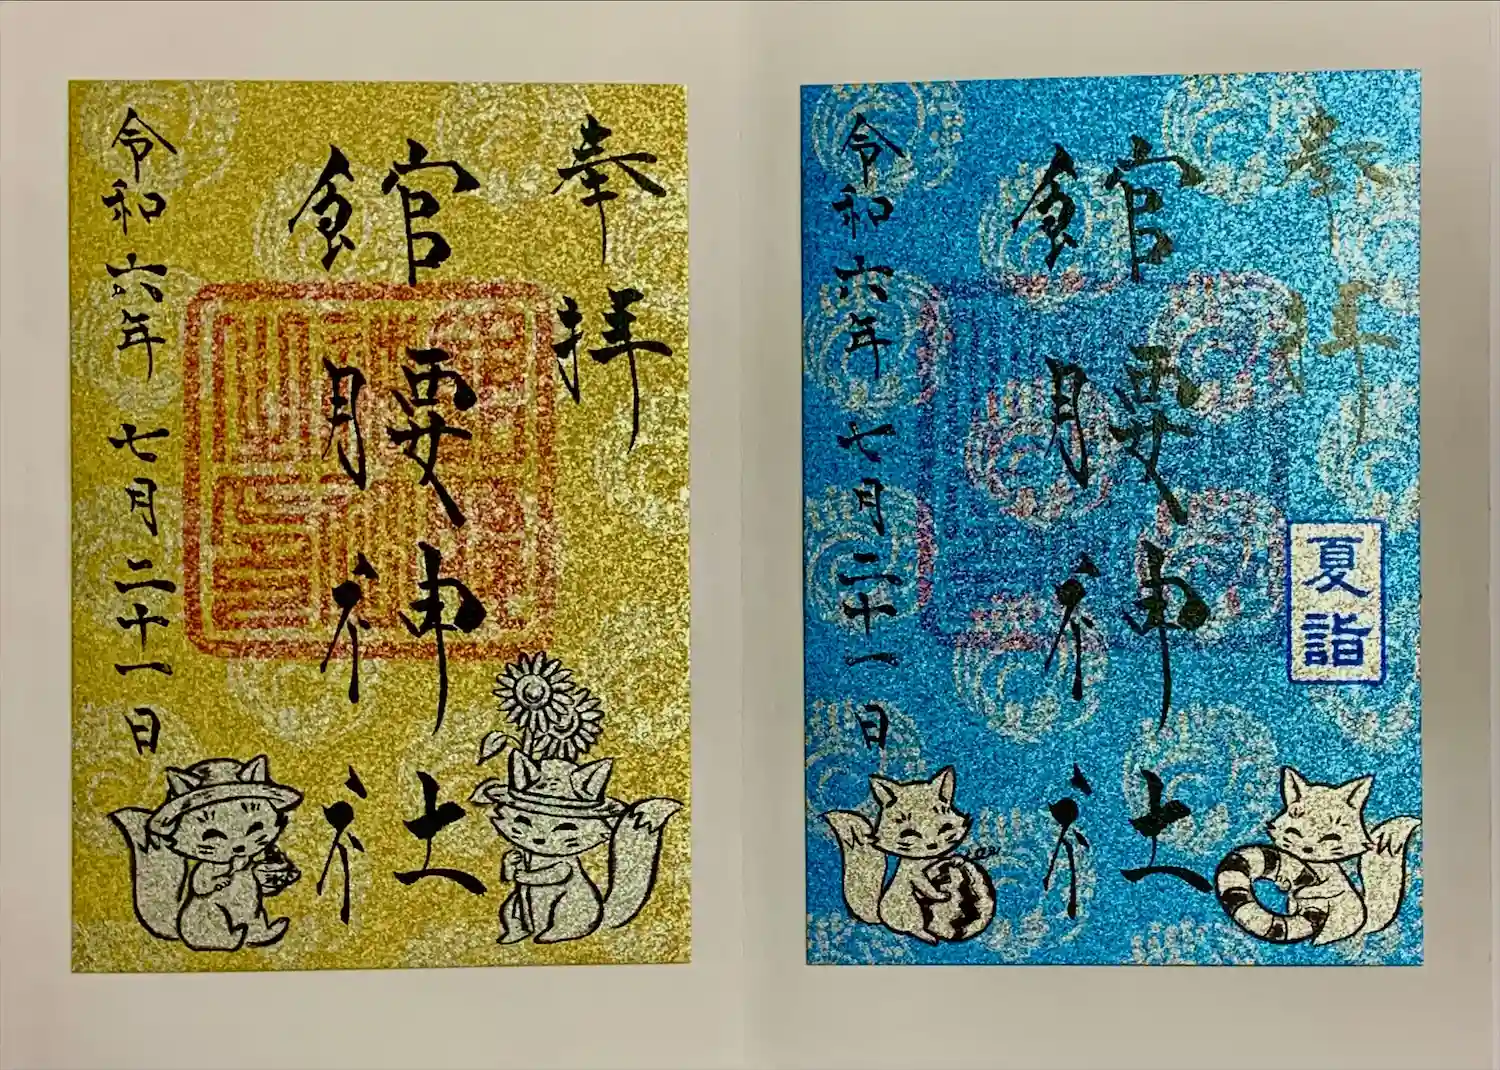 奉拝
館腰神社
令和六年七月二十一日
奉拝
夏詣
館腰神社
令和六年七月二十一日